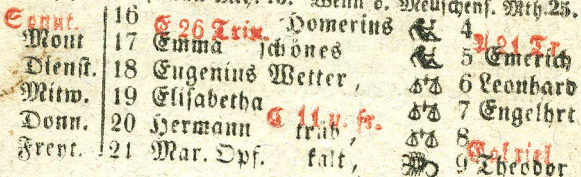 Wenn d. Menschens. Mth. 25.
Sonnt. 16 C 26 Trin. Homerius 4
Mont 17 Emma schönes 5 Emerich
Dienst. 18 Eugenius Wetter, 6 Leonhard
Mitw. 19 Elisabetha 7 Engelhrt
Donn. 20 Hermann trüb, 8
Freyt. 21 Mar. Opf. kalt, 9 Theodor